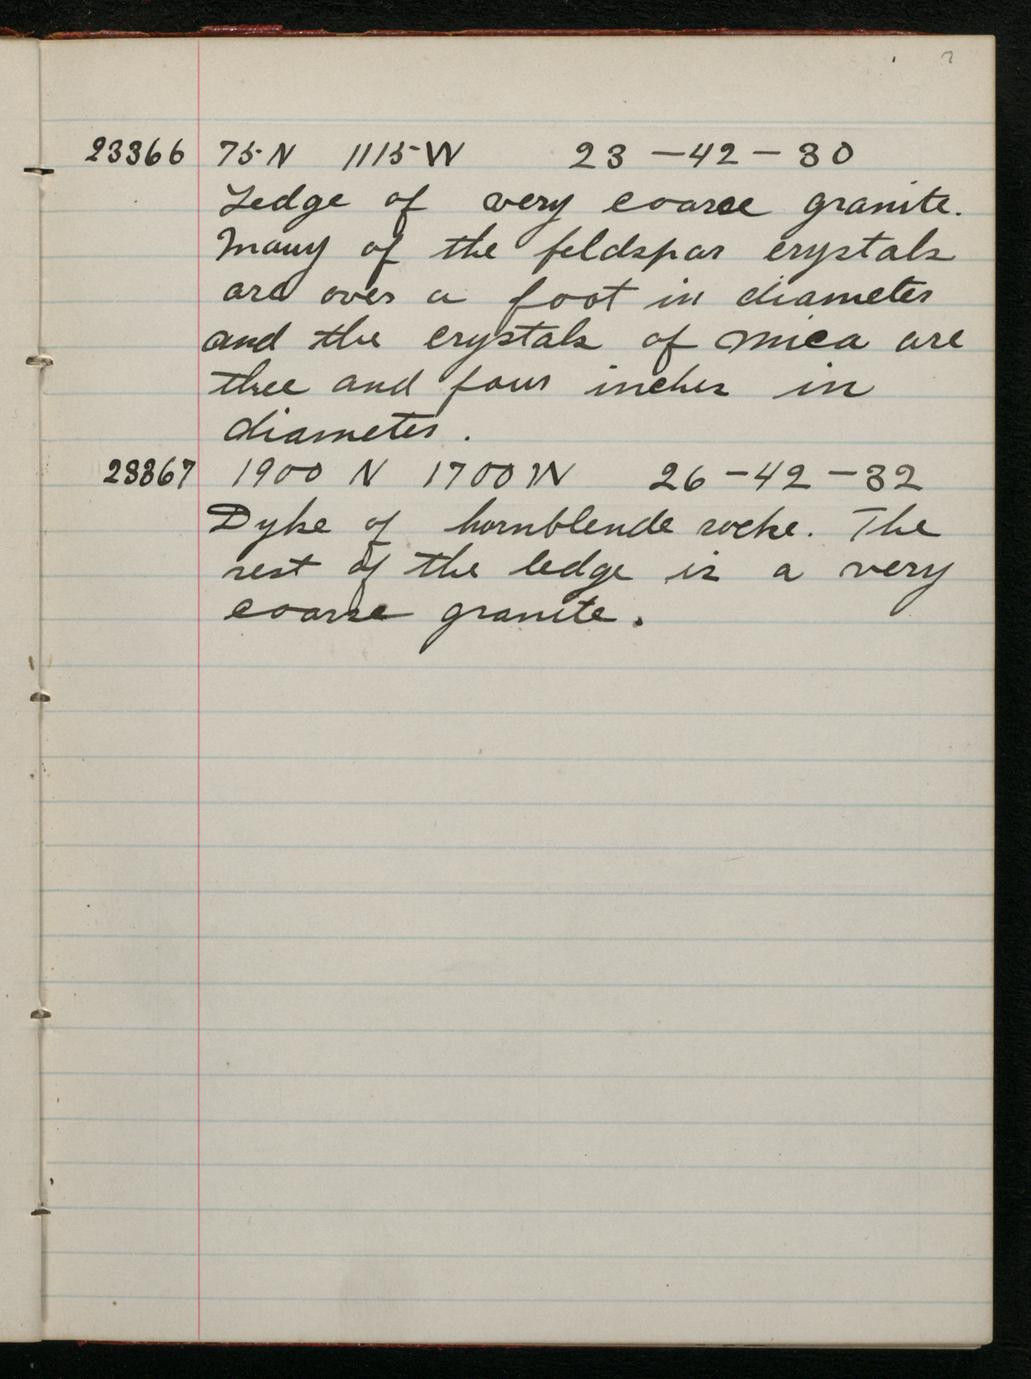 23366 75 N 1115 W 23 - 42 - 30
Ledge of very coarse granite.
Many of the feldspar crystals
are over a foot in diameter
and the crystals of mica are
thee and four inches in
diameter.
23367 1900 N 1700 W 26 - 42 - 32
Dyke of hornblende rocke. The
rest of the ledge is a very
coarse granite.